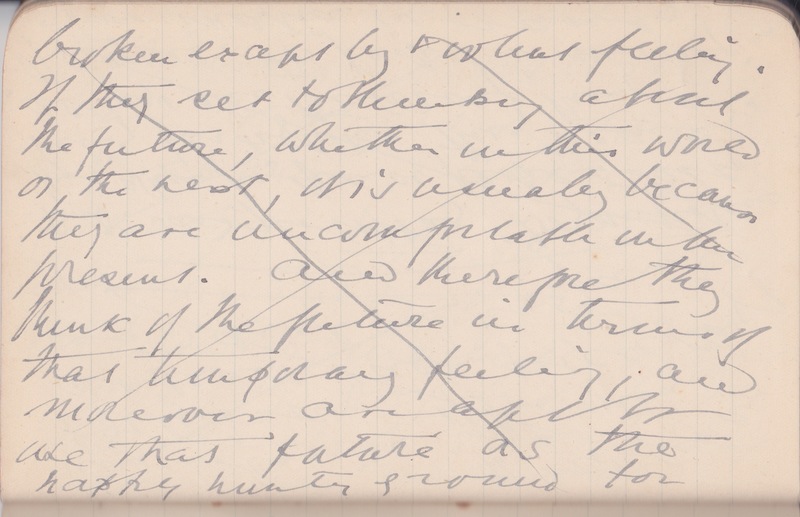 broken except by  what feeling.
If they set to thinking about
the future, whether in this world
or the next, it is usually because
they are uncomfortable in the
present. And therefore they
think of the future in terms of
that temporary feeling, and
moreover are apt to
use that future as the
happy hunting ground for